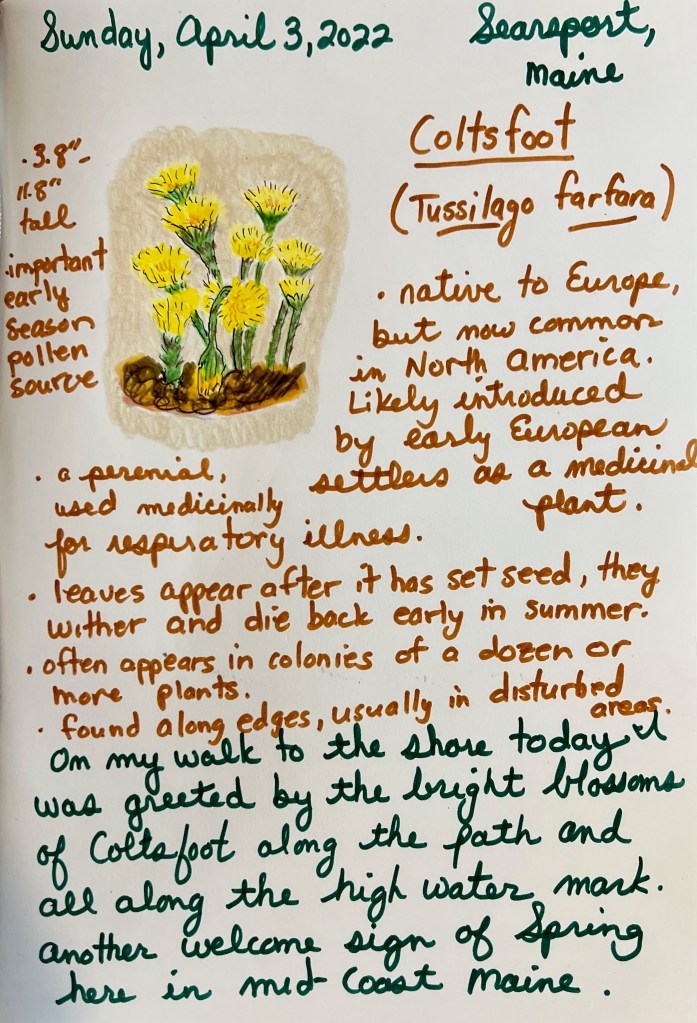 Sunday, April 3, 2022
Searsport,
Maine
Coltsfoot
(Tussilago farfara)
· 3.8"-
11.8"
tall
·important
early
season
pollen
source
· native to Europe,
but now common
in North America.
Likely introduced
by early European
settlers as a medicinal
plant.
· a perenial,
used medicinally
for respiratory illness.
· leaves appear after it has set seed, they
wither and die back early in summer.
· often appears in colonies of a dozen or
more plants.
· found along edges, usually in disturbed
areas.
On my walk to the shore today I
was greeted by the bright blossoms
of Coltsfoot along the path and
all along the high water mark.
another welcome sign of Spring
here in mid-Coast Maine.